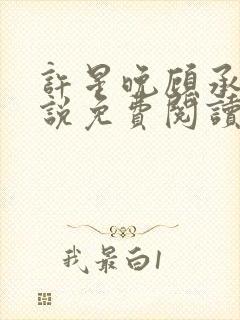 許星晚顧承
說免費閱讀
我最白1